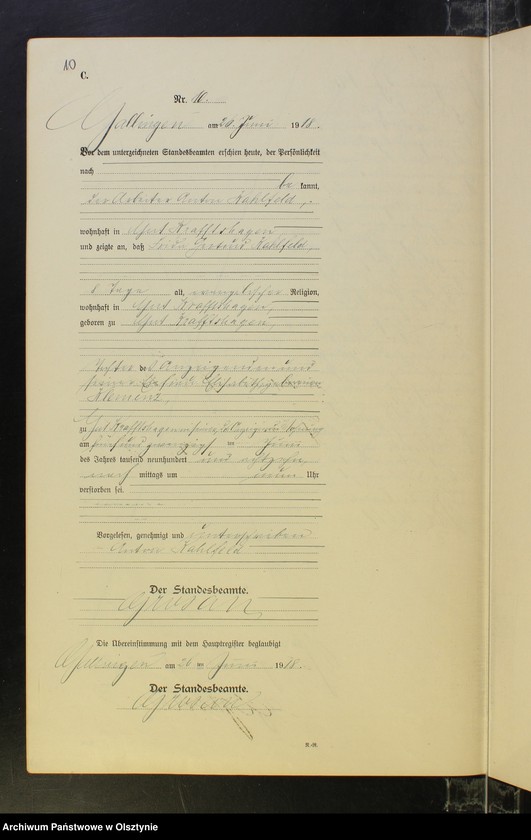 10
C.
Nr. 10.
Gallingen am 26. Juni 1918.
Vor dem unterzeichneten Standesbeamten erschien heute, der Persönlichkeit
nach
be kannt,
der Arbeiter Anton Kahlfeld,
wohnhaft in Gut Krafftshagen
und zeigte an, daß Kahlfeld,
8 Tage alt, evangelischer Religion,
wohnhaft in Gut Krafftshagen,
geboren zu Gut Krafftshagen,
Tochter des Anzeigenden und
seiner Ehefrau geborene
Klemenz,
zu Gut Krafftshagen in
am fünfundzwanzigsten Juni
des Jahres tausend neunhundert und achtzehn
nach mittags um neun Uhr
verstorben sei.
Vorgelesen, genehmigt und unterschrieben
Anton Kahlfeld
Der Standesbeamte.
Die Übereinstimmung mit dem Hauptregister beglaubigt
Gallingen am 26 ten Juni 1918.
Der Standesbeamte.
Archiwum Państwowe w Olsztynie